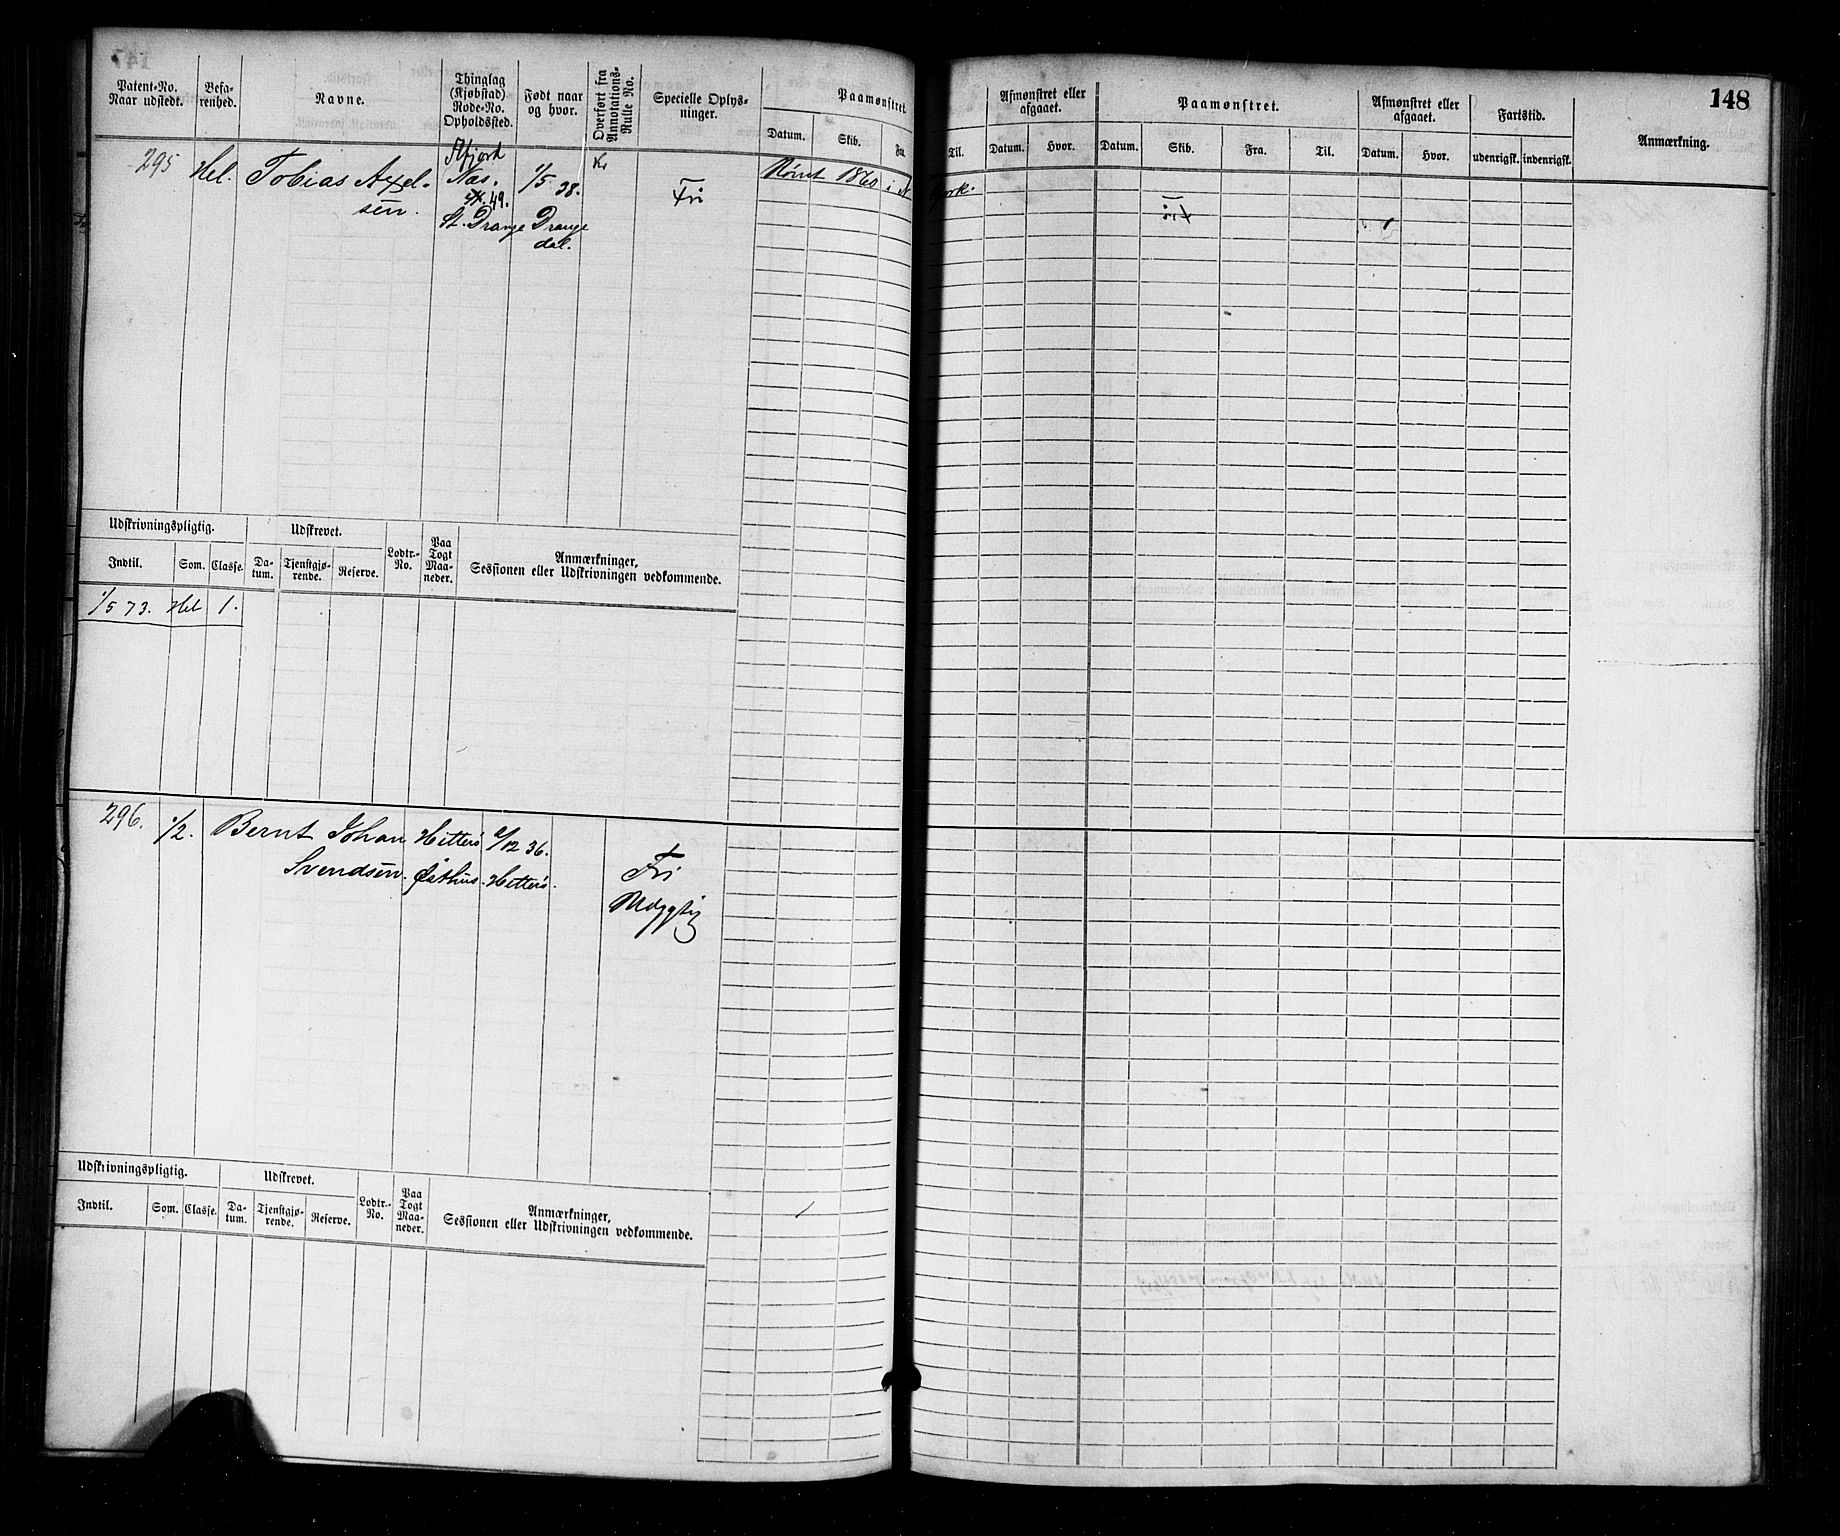 148
Patent-No. Naar udstedt.
Befa-renhed.
Navne.
Thinglag (Kjøbstad) Rode-No. Opholdssted.
Født naar og hvor.
Overført fra Annotations-Rulle No.
Specielle Oplys-ninger.
Paamønstret.
Datum. Skib. Fra. Til.
Afmønstret eller afgaaet.
Datum. Hvor.
Paamønstret.
Datum. Skib. Fra. Til.
Afmønstret eller afgaaet.
Datum. Hvor.
Fartstid.
udenrigsk. indenrigsk.
Anmærkning.
295 Hel. Tobias Axel-
sen.
Næs.
49.
St. Drange
1/5 38.
Drange
dal.
Fri
Rømt 1860 i N york.
Udskrivningspligtig.
Indtil. Som. Classe.
Udskrevet.
Da-tum. Tjenstgjø-rende. Reserve.
Lodtr.-No.
Paa Togt Maa-neder.
Anmærkninger,
Sessionen eller Udskrivningen vedkommende.
1/5 73. Hel 1.
296. 1/2. Bernt Johan Hitterø /12 36.
Svendsen. Østhus. Hitterø.
Fri
Udskrivningspligtig.
Indtil. Som. Classe.
Udskrevet.
Da-tum. Tjenstgjø-rende. Reserve.
Lodtr.-No.
Paa Togt Maa-neder.
Anmærkninger,
Sessionen eller Udskrivningen vedkommende.